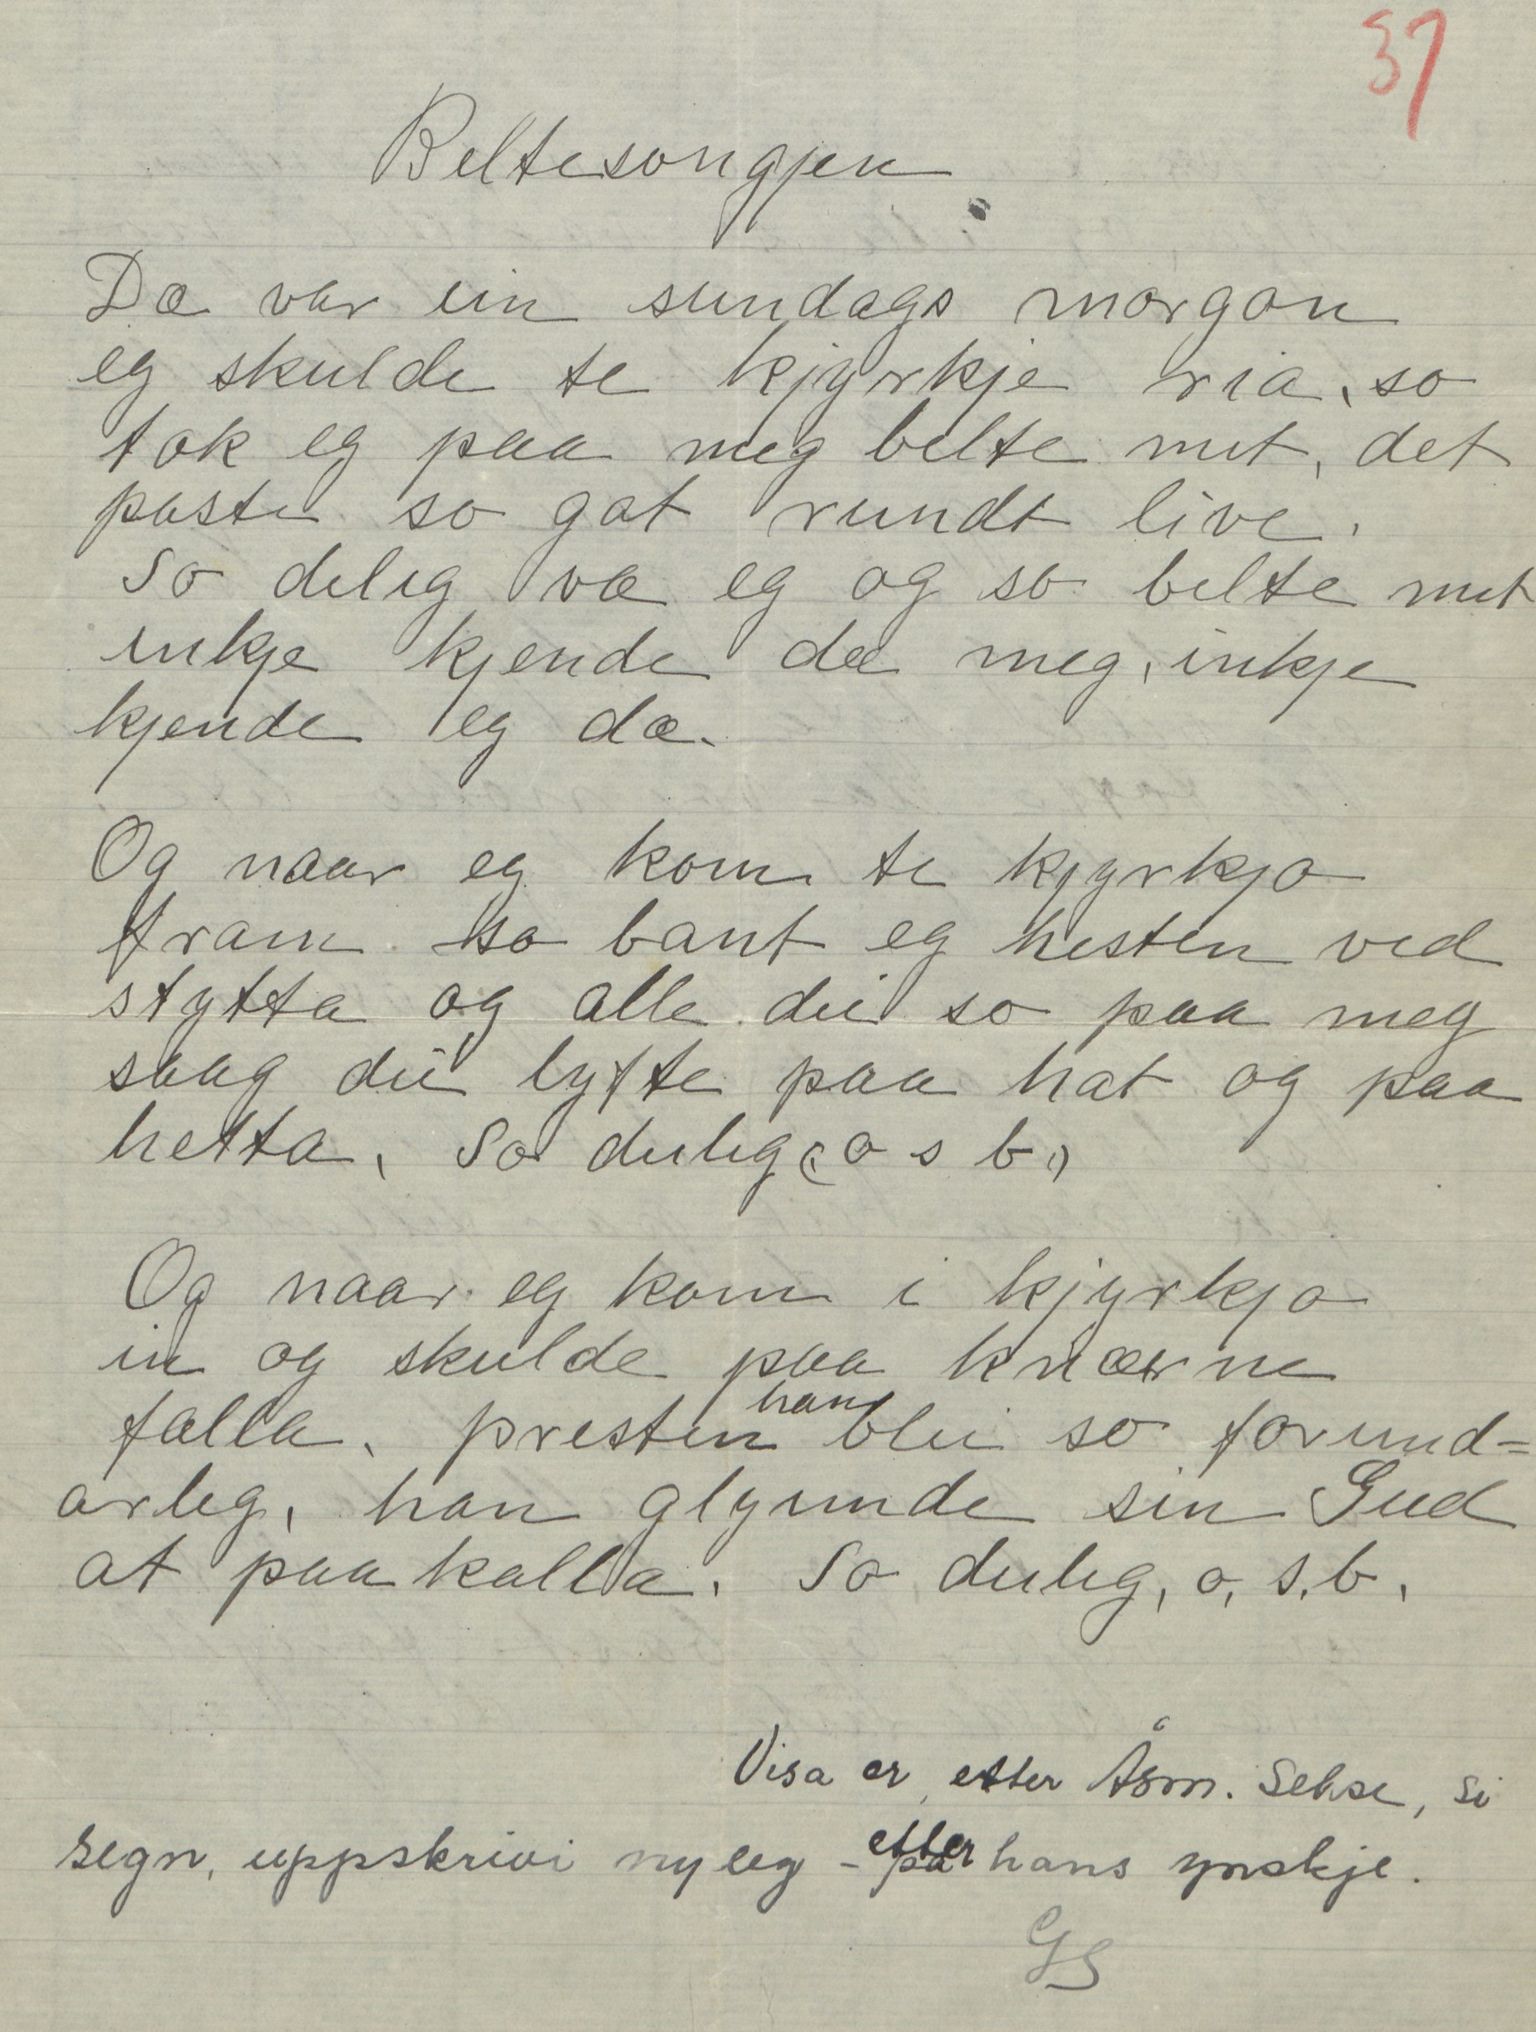 37
Beltesongjen
Dæ var ein sundags morgon
eg skulde te kjyrkje ria, so
tok eg paa meg belte mit, det
paste so gat rundt live.
So deleg væ eg og so belte mit
inkje kjende dæ meg, inkje
kjende eg dæ.
Og naar eg kom te kjyrkjo
fram so bant eg hesten ved
stytta og alle dei so paa meg
saag dei lyfte paa hat og paa
hetta, So deileg (o s b.)
Og naar eg kom i kjyrkjo
in og skulde paa knærne
falla, presten han blei so forund=
arleg, han glymde sin Gud
at paakalla. So deileg, o, s, b,
Visa er, etter Åsm. Sekse, si
segn, uppskrivi nyleg – etter hans ynskje.
GS